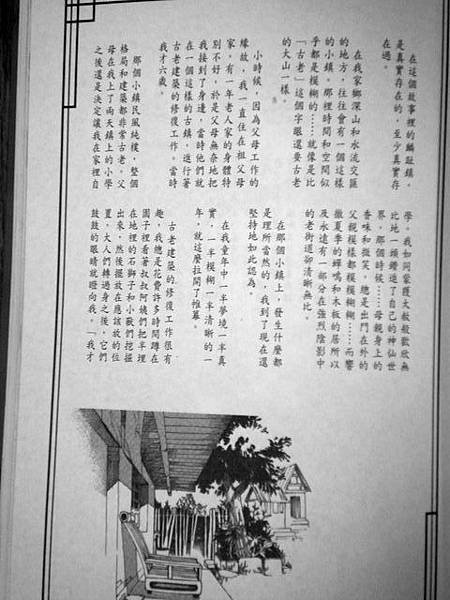 在這個故事裡的麟趾鎮，
是真實存在的，至少真實存
在過。
在我家鄉深山和水流交匯
的地方，往往會有一個這樣
的小鎮。那裡時間和空間似
乎都是模糊的……就像是比
「古老」這個字眼還要古老
的大山一樣。
小時候，因為父母工作的
緣故，我一直住在祖父母
家。有一年老人家的身體特
別不好，於是父母無奈地把
我接到了身邊，當時他們就
在一個這樣的古鎮，進行著
古老建築的修復工作。當時
我才六歲。
那個小鎮民風純樸，整個
格局和建築都非常古老。父
母在我上了兩天鎮上的小學
之後還是決定讓我在家裡自
學。我如同蒙獲大赦般歡欣無
比地一頭鑽進了自己的神仙世
界。那個時候……母親身上的
香味和微笑，總是出門在外的
父親模樣都模模糊糊……而響
徹夏季的蟬鳴和木板的居所以
及永遠有一部分在強烈陰影中
的老街道卻清晰無比。
在那個小鎮上，發生什麼都
是理所當然的，我到了現在還
堅持地如此認為。
在我童年中一半夢境一半真
實，一半模糊一半清晰的一
年，就這麼拉開了帷幕。
古老建築的修復工作很有
趣，我總是花費許多時間蹲在
園子裡看著叔叔阿姨們把半埋
在地裡的石獅子和小獸們挖掘
出來，然後擺放在應該放的位
置。大人們轉過身之後，它們
鼓鼓的眼睛就瞪向我。「我才